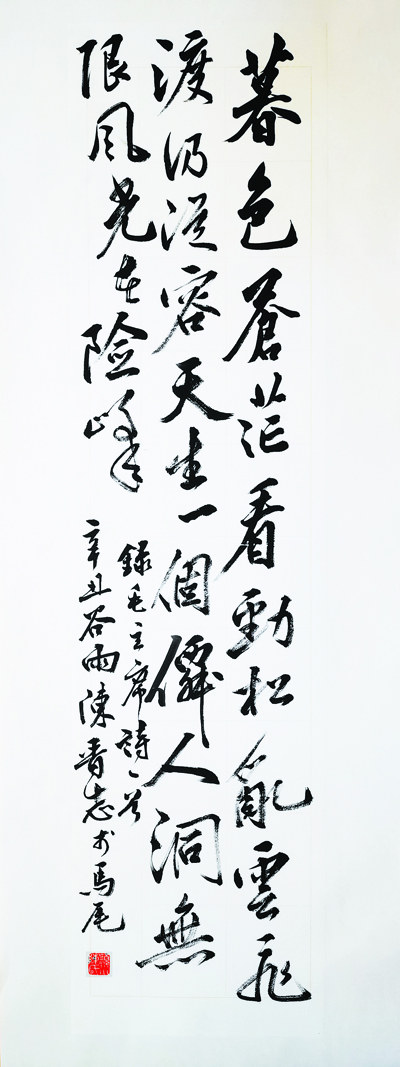 暮色蒼茫看勁松亂雲飛
渡仍從容天生一個僊人洞無
限風光在險峰
錄毛主席詩一首
辛丑谷雨陳晋志於馬尾